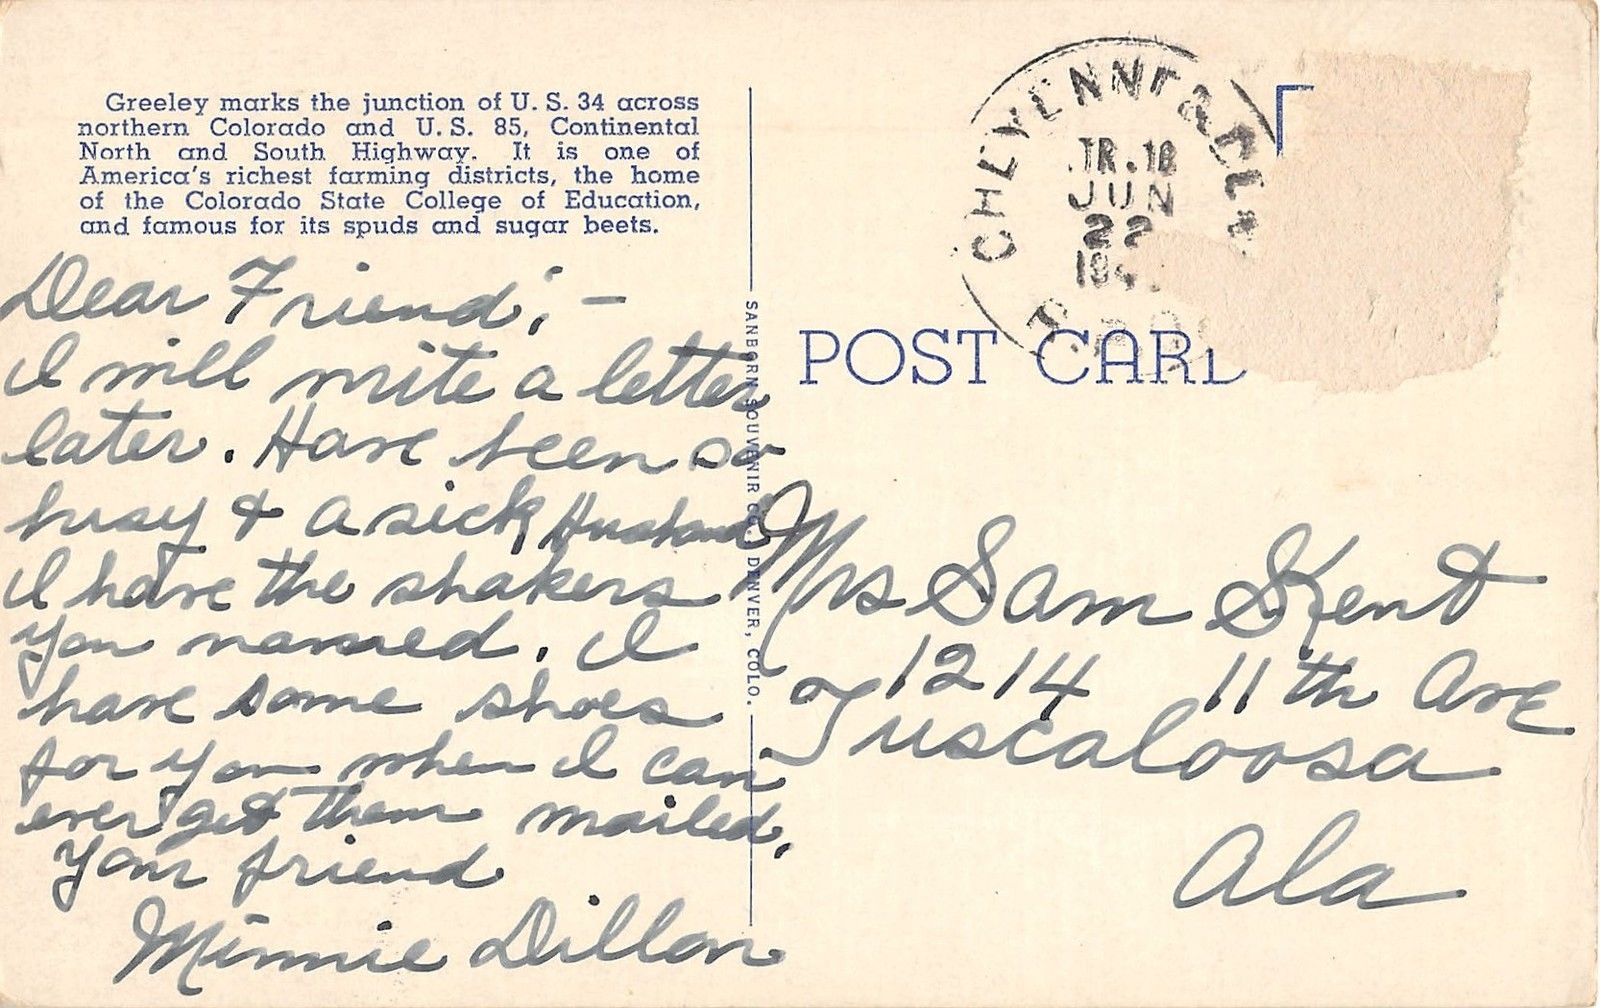 Greeley marks the junction of U. S. 34 across
northern Colorado and U. S. 85, Continental
North and South Highway. It is one of
America's richest farming districts, the home
of the Colorado State College of Education,
and famous for its spuds and sugar beets.
Dear Friend; –
I will write a letter
later. Have been so
busy & a sick Husband
I have the shakers
you named. I
have some shoes
for you when I can
ever get them mailed,
your friend
Minnie Dillon
SANBORN SOUVENIR CO. DENVER, COLO.
CHEYENNE &
TR. 18
JUN
22
POST CARD
Mrs Sam Skent
1214 11th Ave
Tuscaloosa
Ala